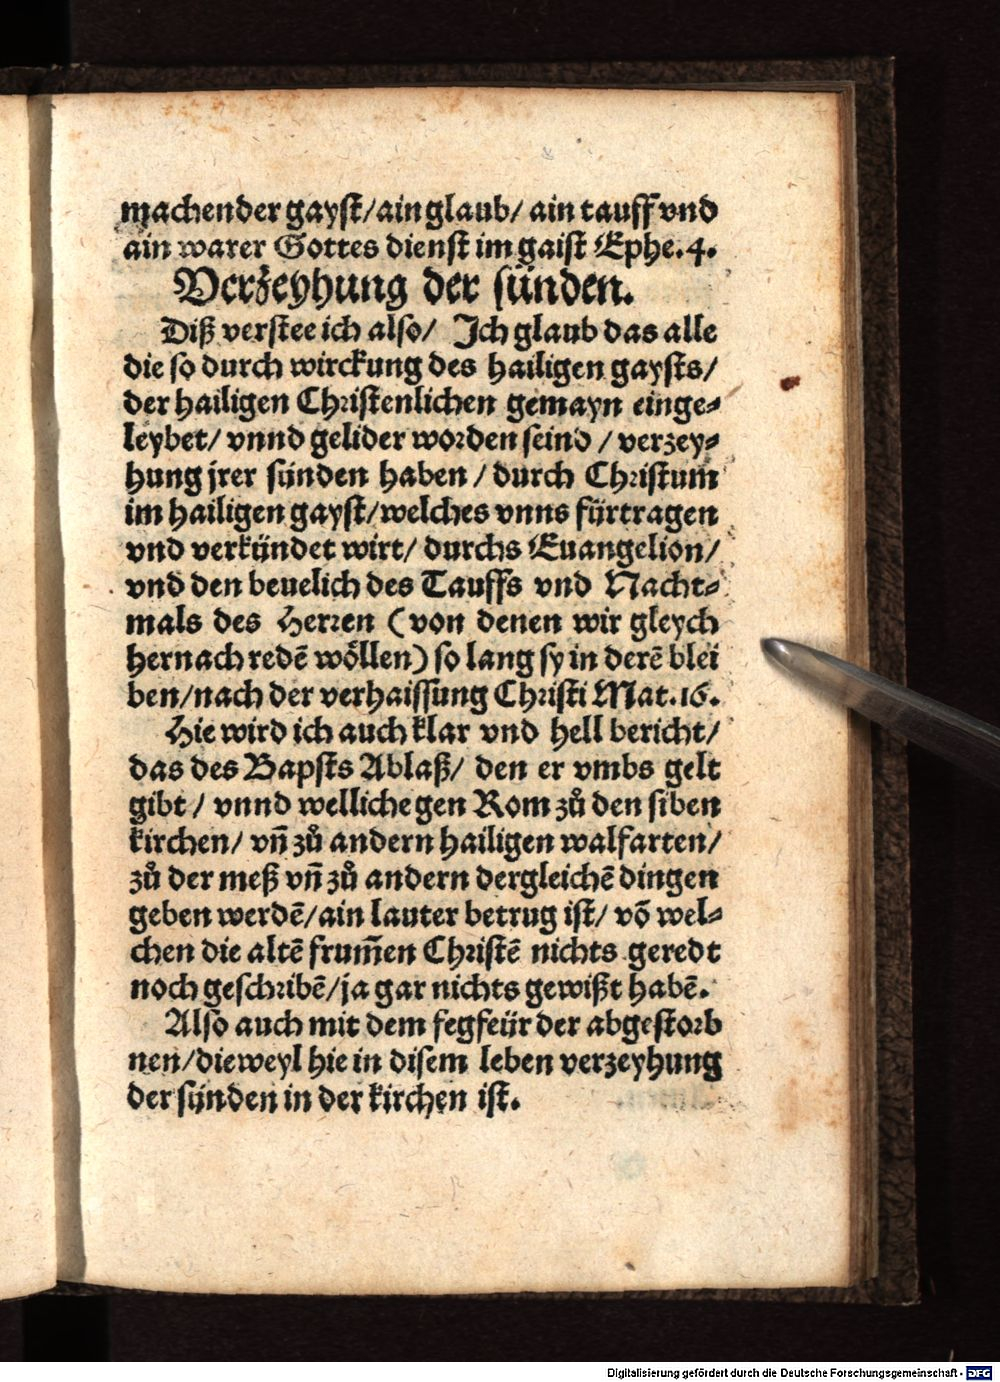 machender gayst/ain glaub/ ain tauff vnd
ain warer Gottes dienst im gaist Ephe.4.
Verzeyhung der sünden.
Diß verstee ich also/ Jch glaub das alle
die so durch wirckung des hailigen gaysts/
der hailigen Christenlichen gemayn einge-
leybet/ vnnd gelider worden seind / verzey-
hung jrer sünden haben / durch Christum
im hailigen gayst/welches vnns fürtragen
vnd verkündet wirt/ durchs Euangelion/
vnd den beuelich des Tauffs vnd Nacht-
mals des Herren (von denen wir gleych
hernach redē wöllen) so lang sy in derē blei
ben/nach der verhaissung Christi Mat.16.
Hie wird ich auch klar vnd hell bericht/
das des Bapsts Ablaß/ den er vmbs gelt
gibt / vnnd welliche gen Rom zů den siben
kirchen/ vn̄ zů andern hailigen walfarten/
zů der meß vn̄ zů andern dergleichē dingen
geben werdē/ain lauter betrug ist/ vō wel-
chen die altē frum̄en Christē nichts geredt
noch geschribē/ja gar nichts gewißt habē.
Also auch mit dem fegfeür der abgestorb
nen/dieweyl hie in disem leben verzeyhung
der sünden in der kirchen ist.
Digitalisierung gefördert durch die Deutsche Forschungsgemeinschaft - DFG